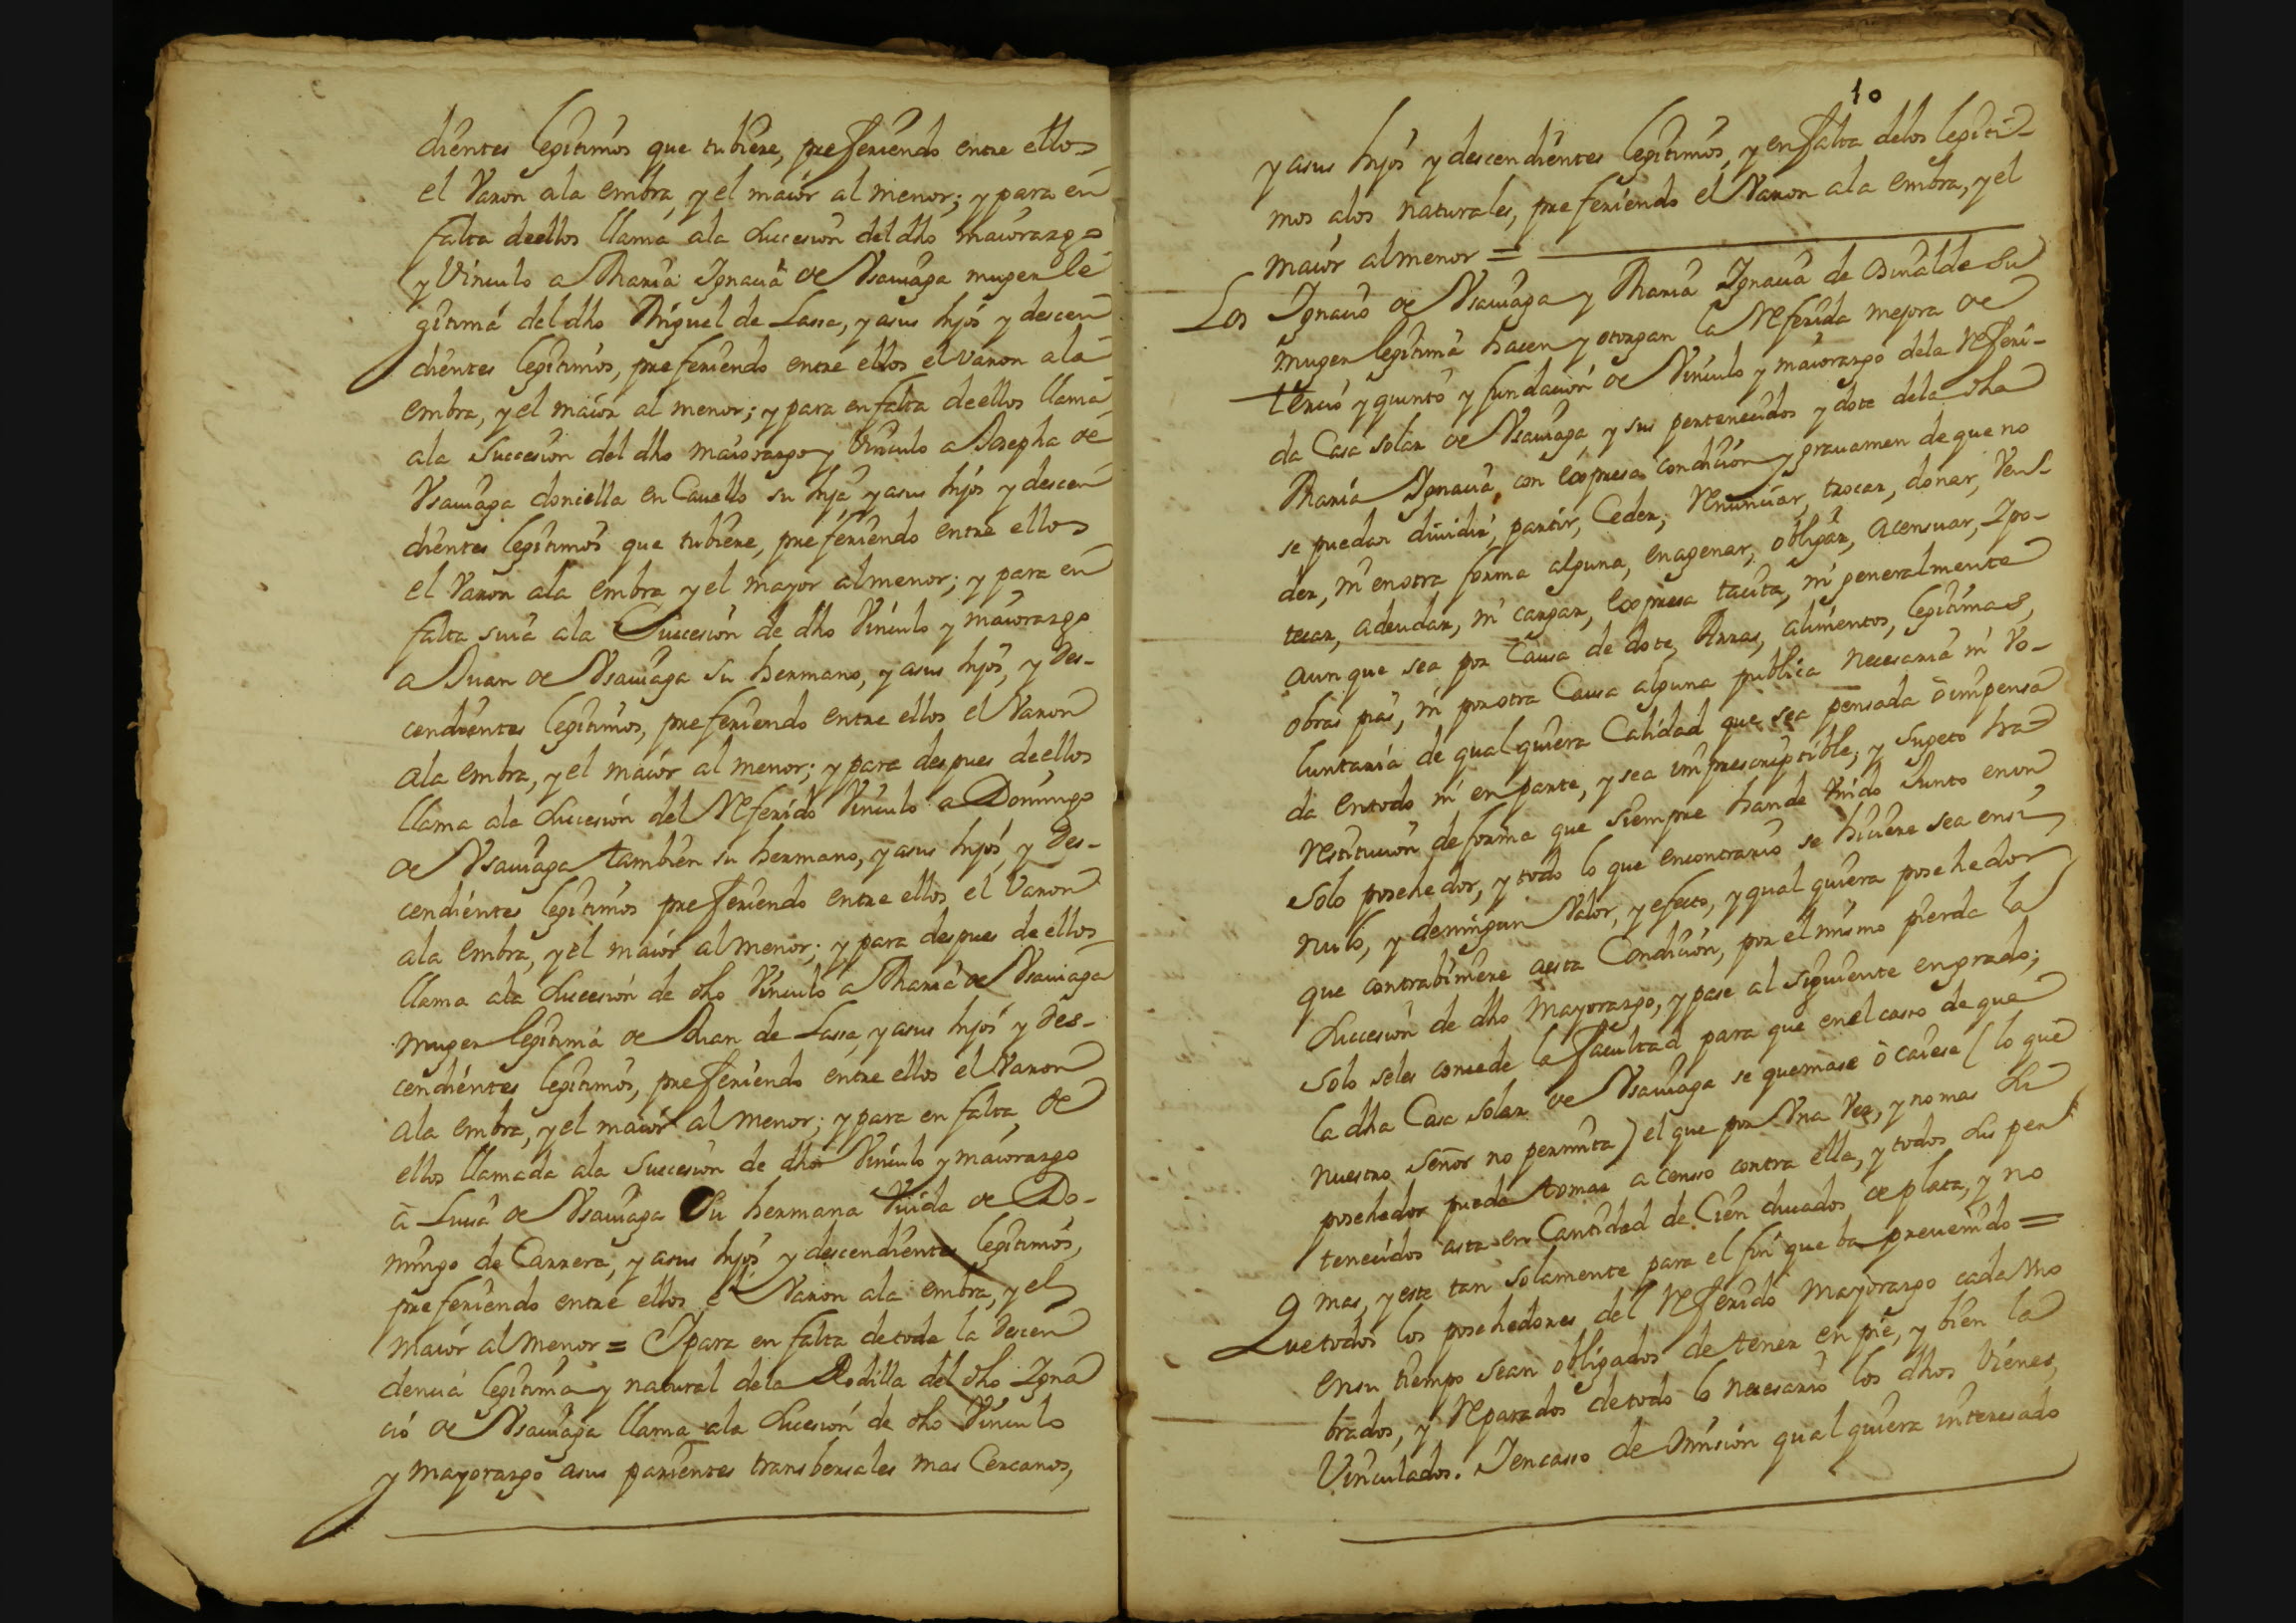 dientes legitimos que tubiere, prefiriendo entre ellos
el Varon ala embra, y el maior al menor; y para en
falta deellos llama ala Succesion del dho maiorazgo
y Vinculo a Maria Ignacia de Vsauiaga muger le
gitima del dho Miguel de Lassa, y asus hijos y descen
dientes legitimos, prefiriendo entre ellos el Varon ala
embra, y el maior al menor; y para en falta deellos llama
ala Succesion del dho maiorazgo y Vinculo a Josepha de
Vsauiaga doncella en Cauello su hija, y asus hijos y descen
dientes legitimos que tubiere, prefiriendo entre ellos
el Varon ala embra y el mayor al menor; y para en
falta suia ala Succesion de dho Vinculo y maiorazgo
a Juan de Vsauiaga su hermano, y asus hijos, y des-
cendientes legitimos, prefiriendo entre ellos el Varon
ala embra, y el maior al menor; y para despues deellos
llama ala Succesion del Referido Vinculo a Domingo
de Vsauiaga tambien su hermano, y asus hijos, y des-
cendientes legitimos prefiriendo entre ellos el Varon
ala embra, y el maior al menor; y para despues de ellos
llama ala Succesion de dho Vinculo a Maria de Vsauiaga
muger legitima de Juan de Lassa, y asus hijos y des-
cendientes legitimos, prefiriendo entre ellos el Varon
ala embra, y el maior al menor; y para en falta, de
ellos llamada ala Succesion de dho Vinculo y maiorazgo
à Luisa de Vsauiaga Su hermana Viuda de Do-
mingo de Carrera, y asus hijos y descendientes legitimos,
prefiriendo entre ellos el Varon ala embra, y el
maior al menor = I para en falta de toda la descen
dencia legitima y natural dela Rodilla del dho Igna
cio de Vsauiaga llama ala Succesion de dho Vinculo
y mayorazgo asus parientes transbersales mas Cercanos,
10
y asus hijos y descendientes legitimos, y en falta delos legiti-
mos alos naturales, prefiriendo el Varon ala embra, y el
maior al menor =
Los Ignacio de Vsauiaga y Maria Ignacia de Osinalde Su
muger legitima hacen y otorgan la Referida mejora de
tercio y quinto y fundacion de Vinculo y maiorazgo dela Referi-
da Casa solar de Vsauiaga, y sus pertenecidos y dote dela dha
Maria Ignacia, con expresa condicion y grauamen de que no
se puedan diuidir, partir, Ceder, Renunciar, trocar, donar, Ven-
der, ni en otra forma alguna, enagenar, obligar, acensuar, Ipo-
tecar, adeudar, ni cargar, expresa tacita, ni generalmente
aunque sea por Causa de dote, Arras, alimentos, legitimas,
obras pias, ni por otra Causa alguna publica necesaria ni Vo-
luntaria de qual quiera Calidad que sea pensada ò impensa
da en todo ni en parte, y sea imprescriptible, y sugeto ha
Restitucion de forma que siempre hande Vnido Junto en un
Solo posehedor, y todo lo que encontrario se hiciere sea en si
nulo, y de ningun Valor, y efecto, y qual quiera posehedor
que contrabiniere aesta Condicion, por el mismo pierda la
Succesion de dho mayorazgo, y pase al siguiente en grado;
Solo seles concede la facultad para que en el casso de que
la dha Casa solar de Vsauiaga se quemase ò caiese (lo que
nuestro Señor no permita) el que por Vna Vez, y no mas Su
posehedor pueda tomar a censso contra ella, y todos Sus per
tenecidos asta en Cantidad de Cien ducados de plata, y no
mas, y este tan solamente para el fin que ba preuenido =
Que todos los posehedores del Referido Mayorazgo cada Vno
en su tiempo sean obligados de tener en pie, y bien la
brados, y Reparados de todo lo necesario los dhos Vienes
Vinculados. I en casso de omision qual quiera interesado